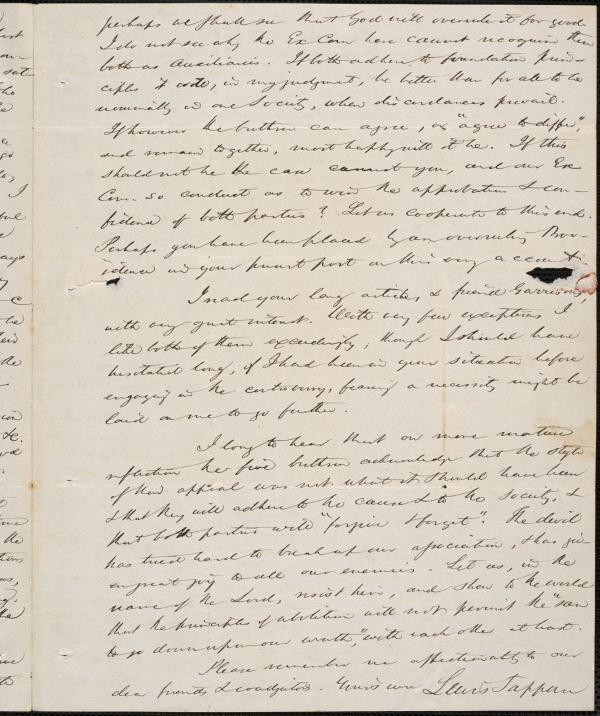 perhaps we shall see that God will overrule it for good.
I do not see why the Ex Com here cannot recognize them
both as Auxiliaries. If both adhere to foundation prin-
ciples it will, in my judgment, be better than for all to be
nominally in one Society, when discordances prevail.
If however the brethren can agree, or "agree to differ",
and remain together, most happy will it be. If this
should not be the case cannot you, and our Ex
Com. so conduct as to win the approbation & con-
fidence of both parties? Let us cooperate to this end.
Perhaps you have been placed by an overruling Prov-
idence in your present post on this very account.
I read your long articles, & friend Garrison's,
with very great interest. With very few exceptions I
like both of them exceedingly; though I should have
hesitated long, if I had been in your situation before
engaging in the controversy, fearing a necessity might be
laid on me to go further.
I long to hear that on more mature
reflection the five brethren acknowledge that the style
of their appeal was not what it should have been
& that they will adhere to the cause & to the Society, &
that both parties will "forgive & forget". The devil
has tried hard to break up our association, & has giv-
en great joy to all our enemies. Let us, in the
name of the Lord, resist him, and show to the world
that the principles of abolition will not permit the "sun
to go down upon our wrath," with each other at least.
Please remember me affectionately to our
dear friends & coadjutors. Yours ever Lewis Tappan